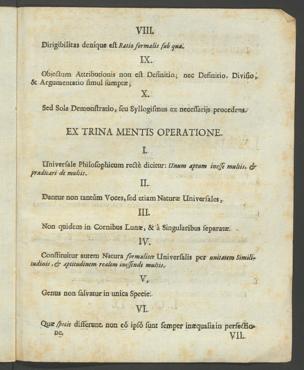 VIII.
Dirigibilitas denique est Ratio formalis sub qua.
IX.
Objectum Attributionis non est Definitio, nec Definitio, Divisio,
& Argumentatio simul sumptæ;
X.
Sed Sola Demonstratio, seu Syllogismus ex necessarijs procedens.
EX TRINA MENTIS OPERATIONE.
I.
Universale Philosophicum rectè dicitur: Unum aptum inesse multis, &
prædicari de multis.
II.
Dantur non tantùm Voces, sed etiam Naturæ Universales,
III.
Non quidem in Cornibus Lunæ, & à Singularibus separatæ.
IV.
Constituitur autem Natura formaliter Universalis per unitatem Simili-
tudinis, & aptitudinem realem inessendi multis.
V.
Genus non salvatur in unica Specie:
VI.
Quæ specie differunt, non eô ipsô sunt semper inæqualia in perfectio-
ne.
VII.